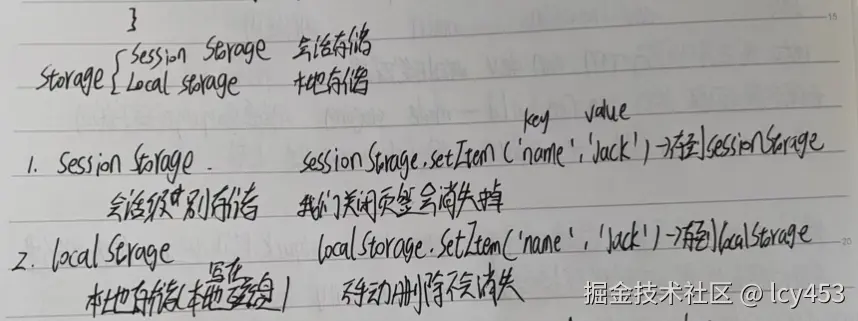 }
Storage { Session Storage 会话存储
Local storage 本地存储
key value
1. Session Storage. sessionStorage.setItem('name','Jack')→存到sessionStorage
会话级别存储 我们关闭页签会消失掉
2. local Storage localStorage.SetItem('name','Jack')→存到localStorage
写在
本地存储(本地磁盘) 不手动删除不会消失
掘金技术社区 @ lcy453
15
20